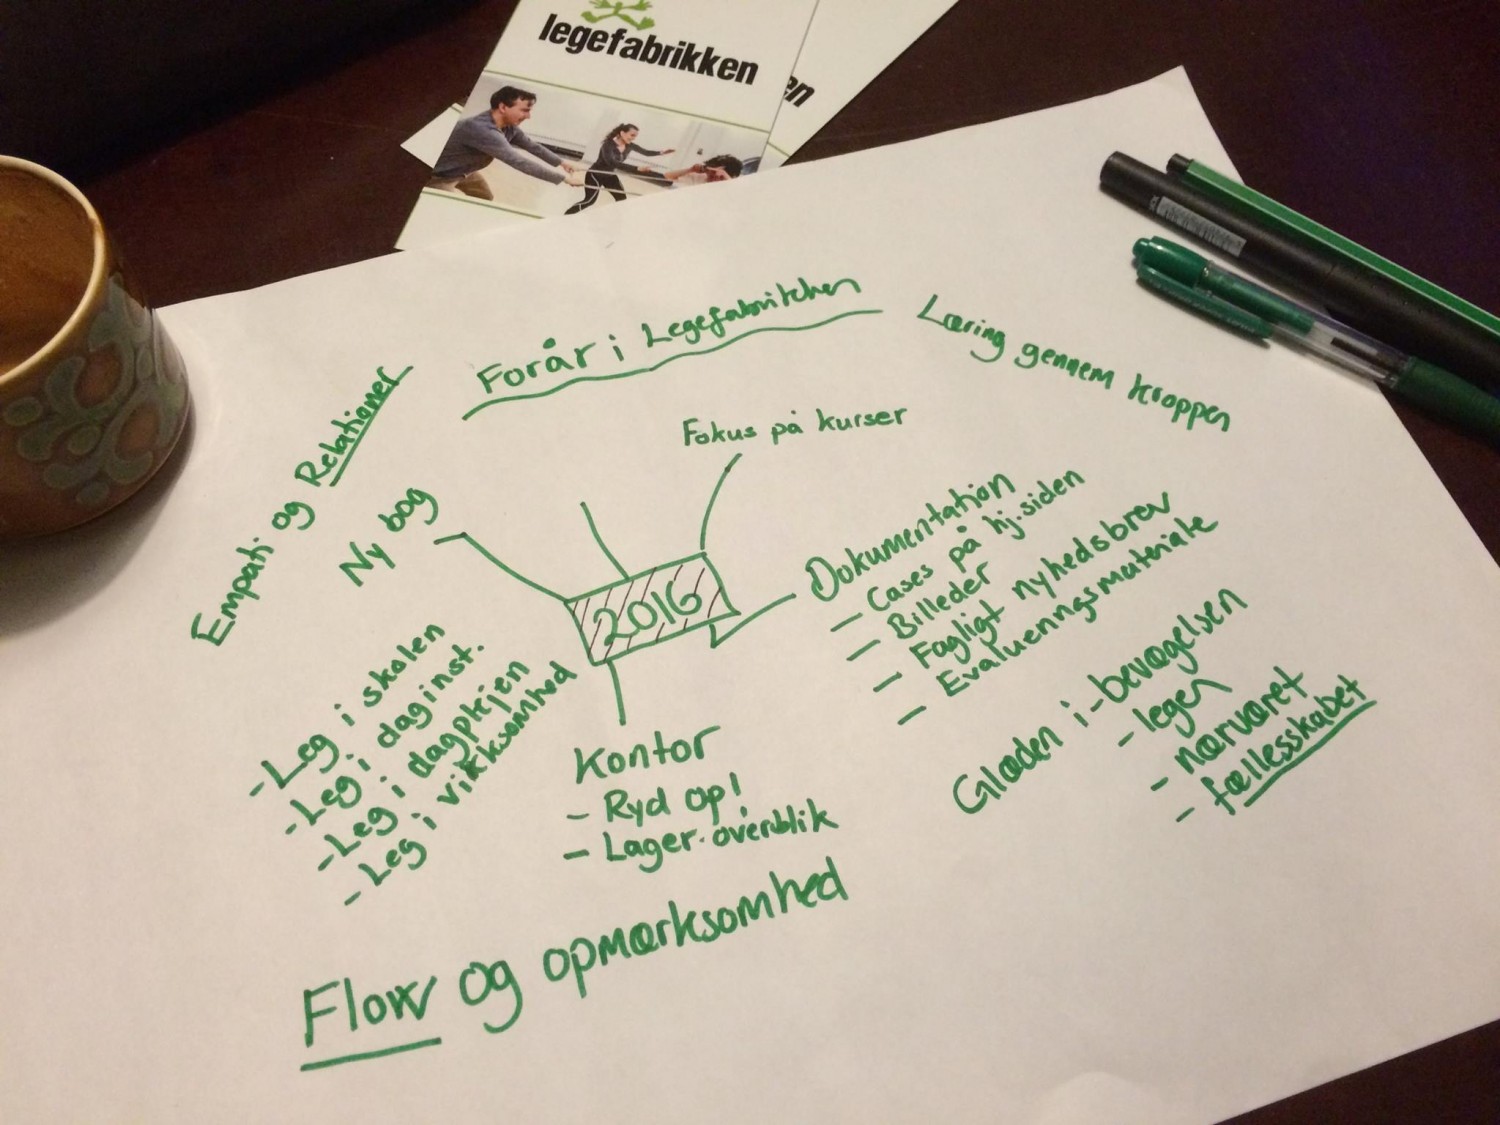 legefabrikken
en
Forår i Legefabrikken
Læring gennem kroppen
Empati og Relationer
Fokus på kurser
Ny bog
2016
Dokumentation
- Cases på hj.siden
- Billeder
- Fagligt nyhedsbrev
- Evalueringsmateriale
- Leg i skolen
- Leg i daginst.
- Leg i dagplejen
- Leg i virksomhed
Kontor
- Ryd op!
- Lager-overblik
Glæden i - bevægelsen
- legen
- nærværet
- fællesskabet
Flow og opmærksomhed